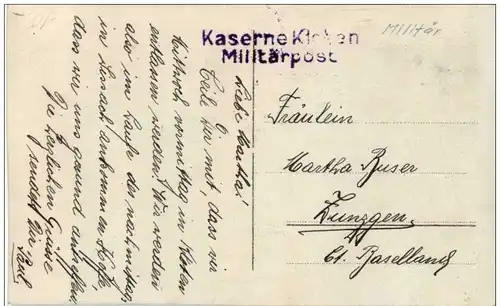 Kaserne Kloten
Militärpost
Militär
Liebe Martha!
Teile Dir mit, dass wir
Mittwoch vormittag in Kloten
entlassen werden. Wir werden
also im Laufe des nachmittags
in Sissach ankommen. Hoffe,
dass wir uns gesund antreffen
Die herzlichen Grüsse
sendet Dir Paul
Fräulein
Martha Buser
Zunzgen
Ct. Baselland